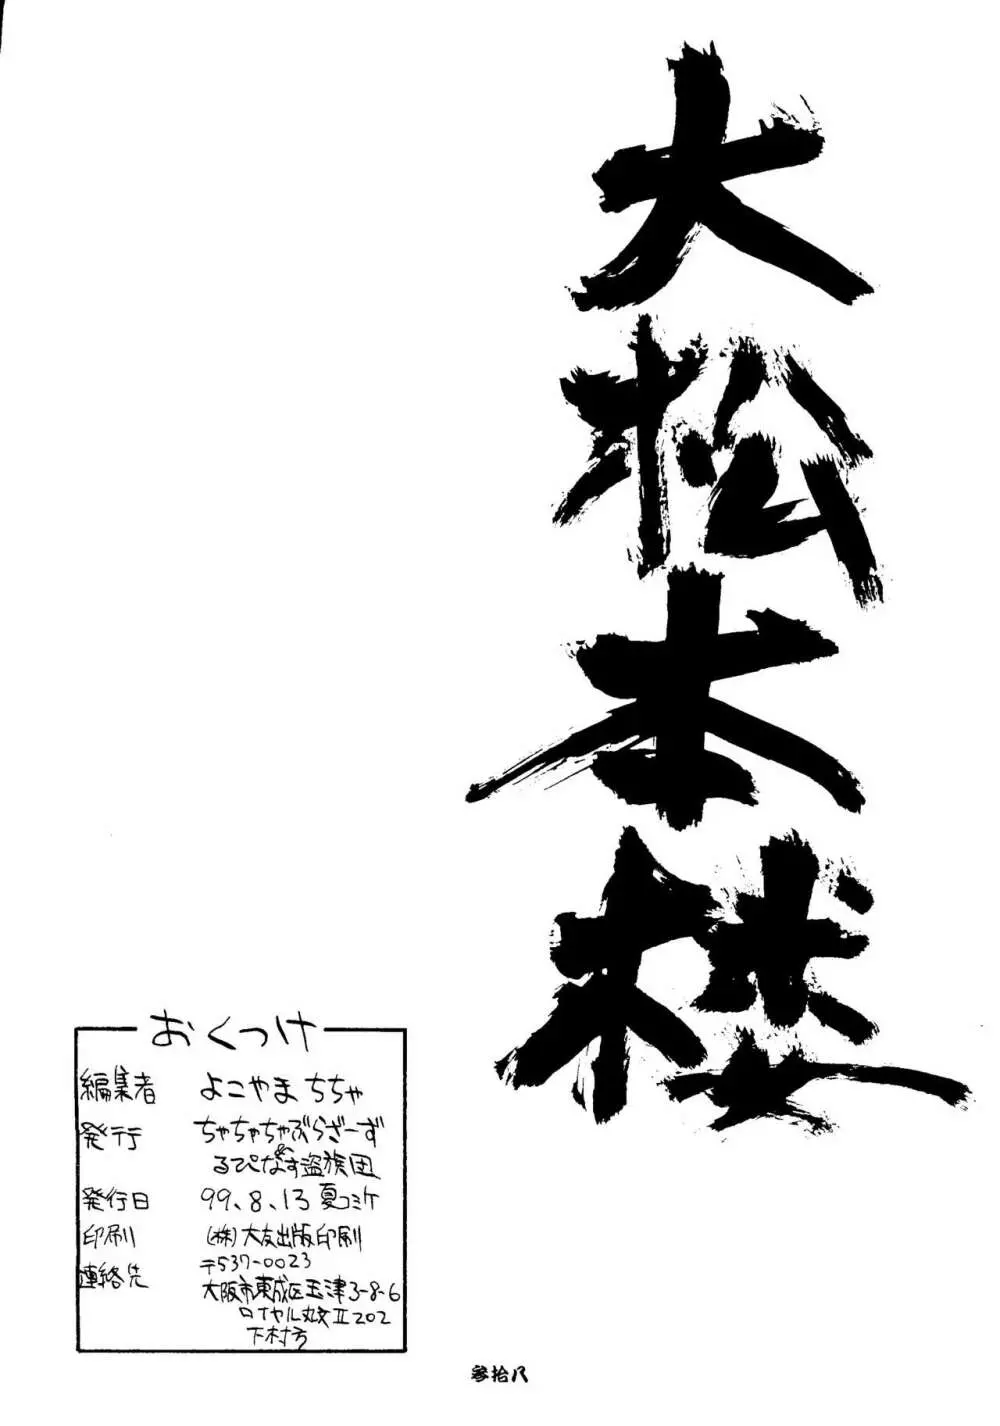 大松本楼
おくつけ
編集者 よこやま ちちゃ
発行 ちゃちゃちゃぶらざーず
るぴなす盗族団
発行日 99.8.13 夏コミケ
印刷 (株)大友出版印刷
連絡先 〒537-0023
大阪市東成区玉津3-8-6
ロイヤル丸文Ⅱ202
下村方
参拾八